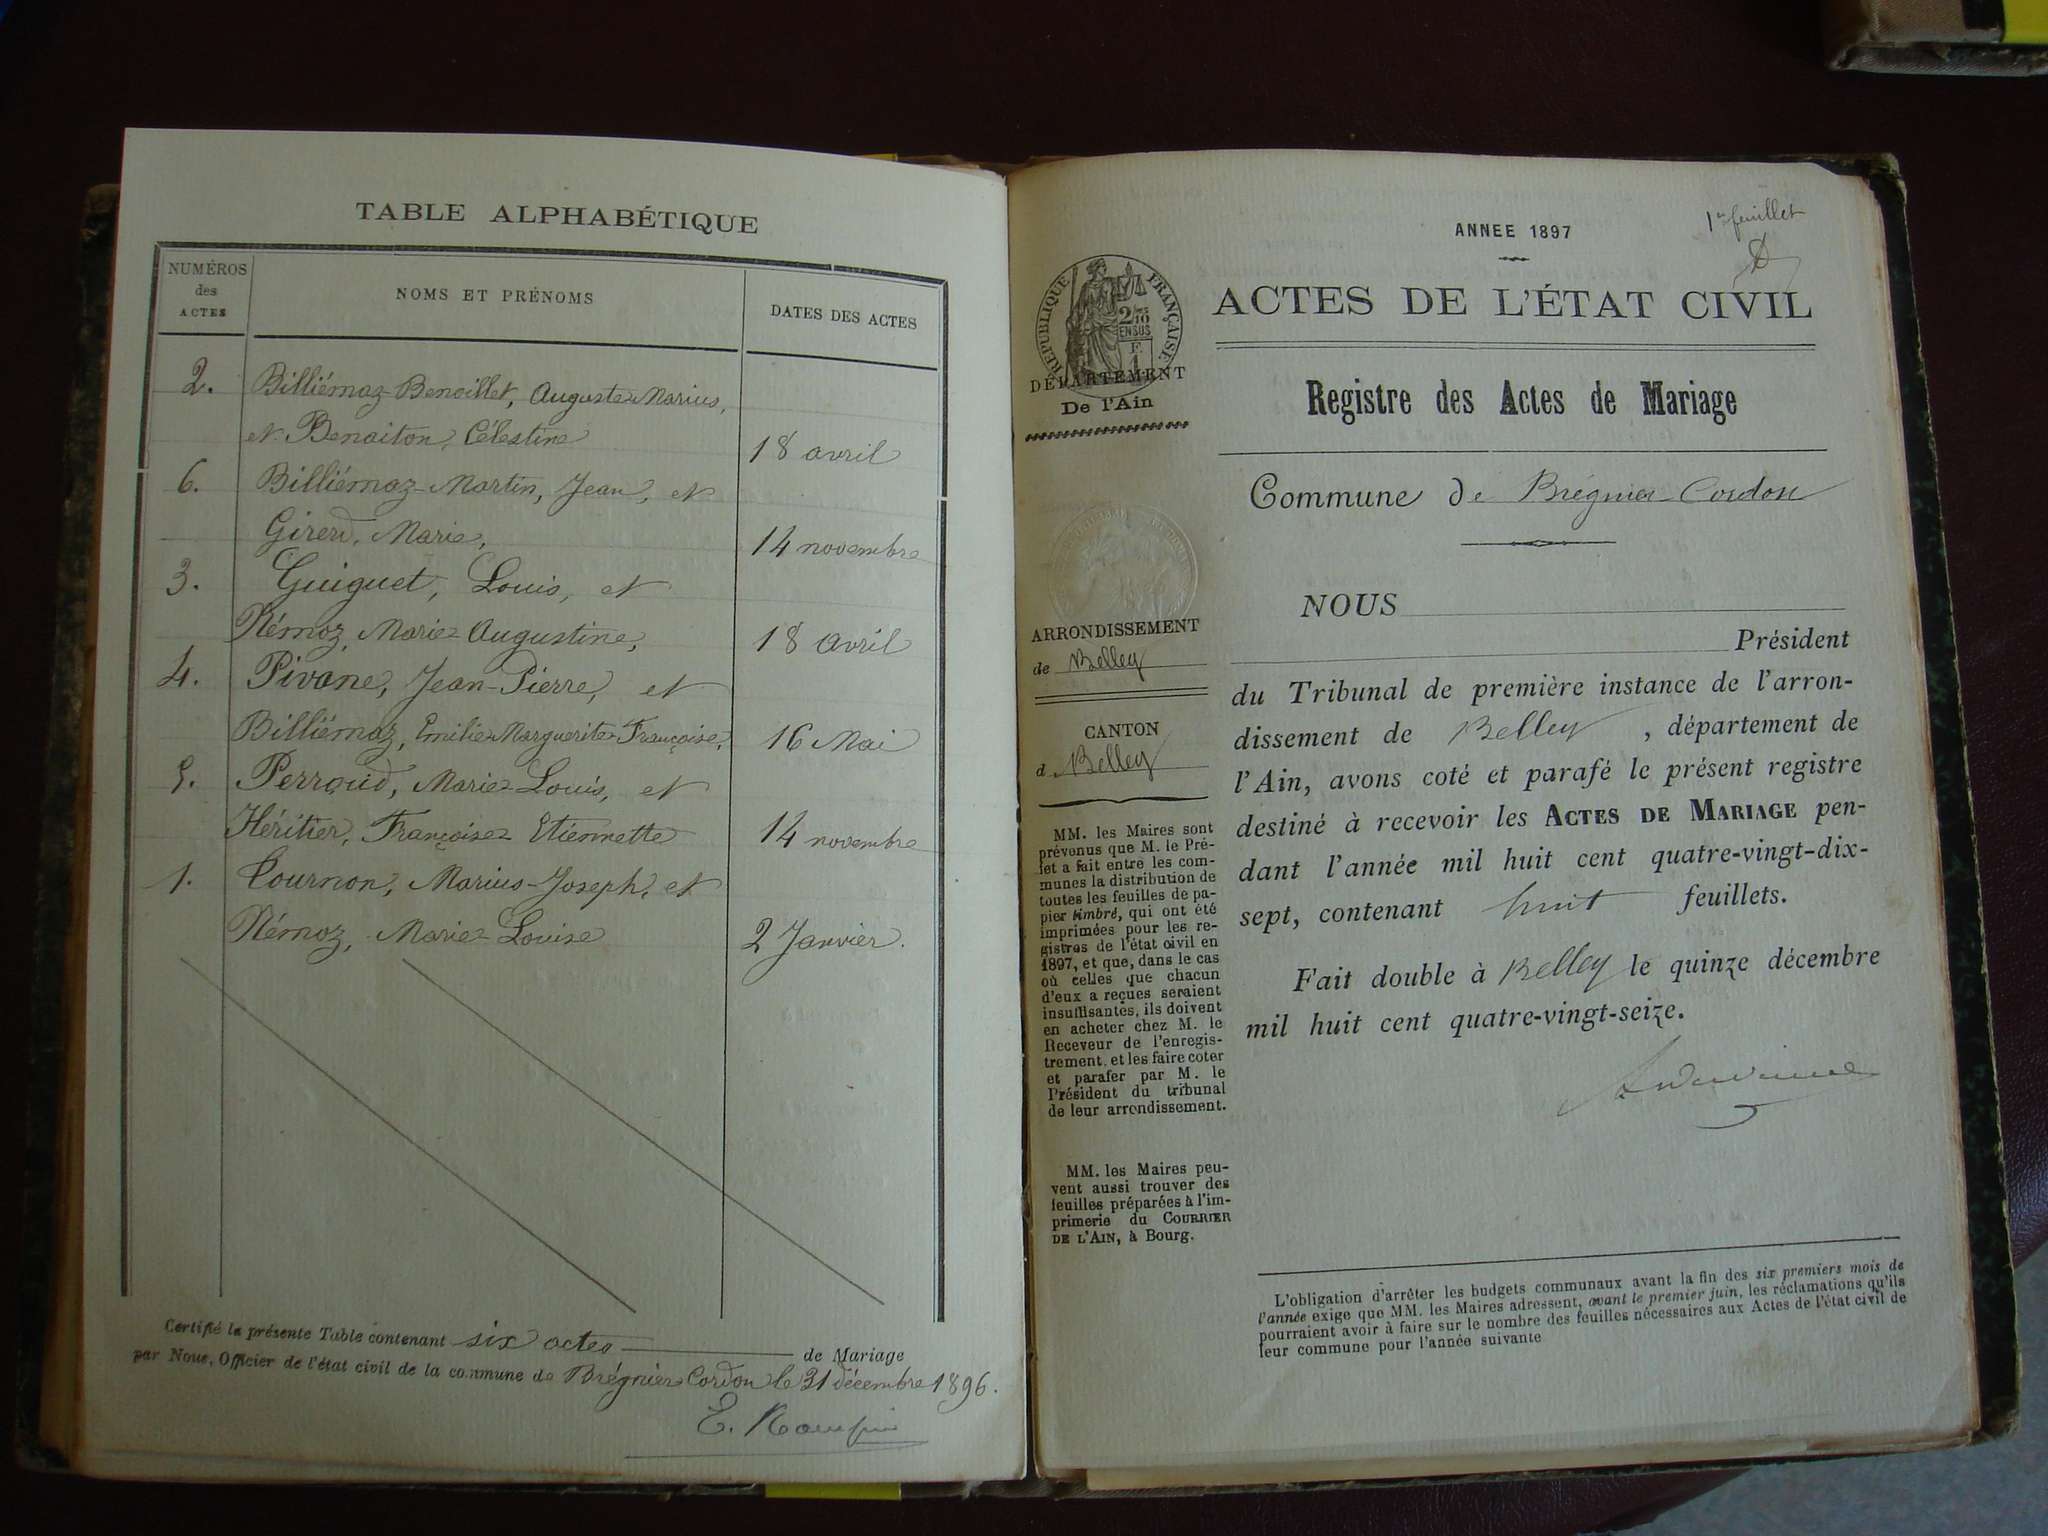 TABLE ALPHABÉTIQUE
NUMÉROS
des
ACTES
NOMS ET PRÉNOMS
DATES DES ACTES
2. Billiémaz-Benoillet, Auguste-Marius,
et Benaiton, Célestine 18 avril
6. Billiémaz-Martin, Jean, et
Girerd, Marie, 14 novembre
3. Guiguet, Louis, et
Némoz, Marie-Augustine, 18 avril
4. Pivane, Jean-Pierre, et
Billiémaz, Emilie-Marguerite-Françoise, 16 Mai
5. Perraud, Marie-Louis, et
Héritier, Françoise-Etiennette 14 novembre
1. Tournon, Marius-Joseph, et
Némoz, Marie-Louise 2 Janvier.
Certifié la présente Table contenant six actes de Mariage
par Nous, Officier de l'état civil de la commune de Brégnier-Cordon le 31 décembre 1896.
1er feuillet
ANNEE 1897
ACTES DE L'ÉTAT CIVIL
RÉPUBLIQUE FRANÇAISE
2/10
EN SUS
F.
1
DÉPARTEMENT
De l'Ain
Registre des Actes de Mariage
Commune de Brégnier-Cordon
ARRONDISSEMENT
de Belley
CANTON
d Belley
MM. les Maires sont
prévenus que M. le Pré-
fet a fait entre les com-
munes la distribution de
toutes les feuilles de pa-
pier timbré, qui ont été
imprimées pour les re-
gistres de l'état civil en
1897, et que, dans le cas
où celles que chacun
d'eux a reçues seraient
insuffisantes, ils doivent
en acheter chez M. le
Receveur de l'enregis-
trement, et les faire coter
et parafer par M. le
Président du tribunal
de leur arrondissement.
MM. les Maires peu-
vent aussi trouver des
feuilles préparées à l'im-
primerie du COURRIER
DE L'AIN, à Bourg.
NOUS
Président
du Tribunal de première instance de l'arron-
dissement de Belley, département de
l'Ain, avons coté et parafé le présent registre
destiné à recevoir les ACTES DE MARIAGE pen-
dant l'année mil huit cent quatre-vingt-dix-
sept, contenant huit feuillets.
Fait double à Belley le quinze décembre
mil huit cent quatre-vingt-seize.
L'obligation d'arrêter les budgets communaux avant la fin des six premiers mois de
l'année exige que MM. les Maires adressent, avant le premier juin, les réclamations qu'ils
pourraient avoir à faire sur le nombre des feuilles nécessaires aux Actes de l'état civil de
leur commune pour l'année suivante